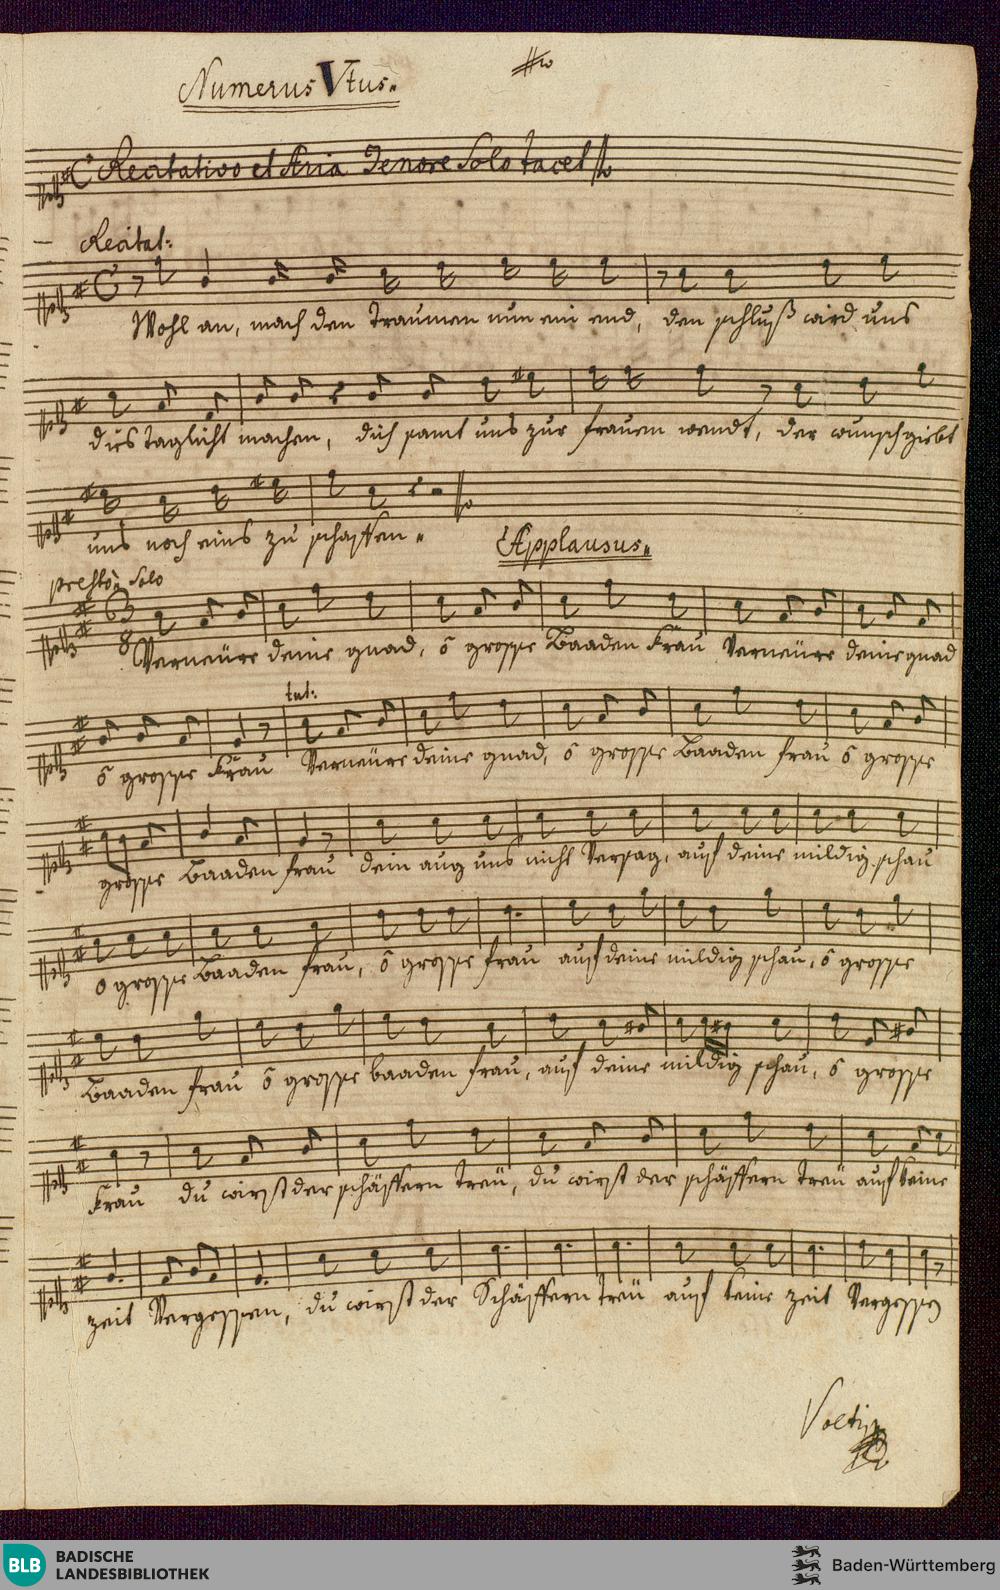 Numerus Vtus.
Recitativo et Aria Tenore Solo tacet
Recitat:
Wohl an, mach den Traumen nun ein end, den schluß wird uns
dies taglicht machen, dich samt uns zur frauen wendt, der wunsch giebt
uns noch eins zu schaffen
Applausus
presto Solo
Verneüre deine gnad, ô grosse Baaden Frau Verneüre deine gnad
ô grosse Frau
tut:
Verneüre deine gnad, ô grosse Baaden frau ô grosse
grosse Baaden frau dein aug uns nicht Versag, auf deine mildig schau
o grosse Baaden frau, ô grosse frau auf deine mildig schau, ô grosse
Baaden frau ô grosse baaden frau, auf deine mildig schau, ô grosse
Frau du wirst der schäffern treü, du wirst der schäffern treü auf keine
zeit Vergessen, du wirst der Schäffern treü auf keine zeit Vergessen
BLB BADISCHE
LANDESBIBLIOTHEK
Baden-Württemberg